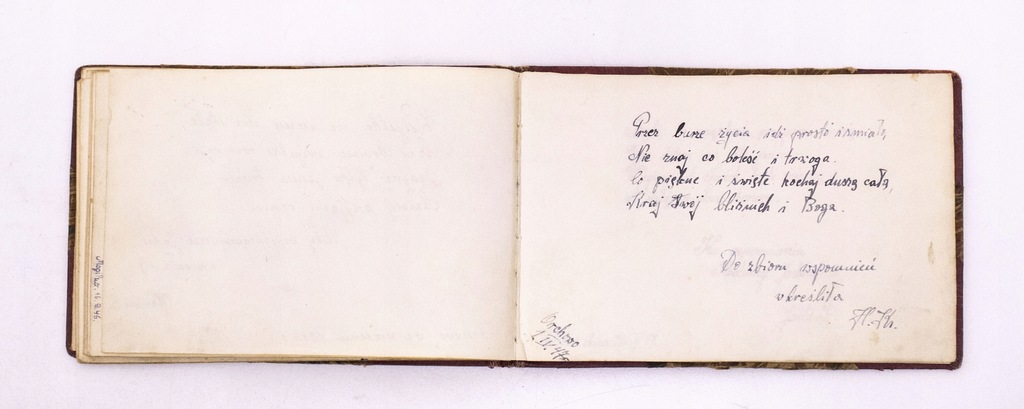 Przez burze życia idź prosto i śmiało,
Nie znaj co boleść i trwoga.
Co piękne i święte kochaj duszą całą,
Kraj Twój bliźnich i Boga.
Do zbioru wspomnień
wkreśliła
H. Kr.
Orchowo
1 IV. 47r.